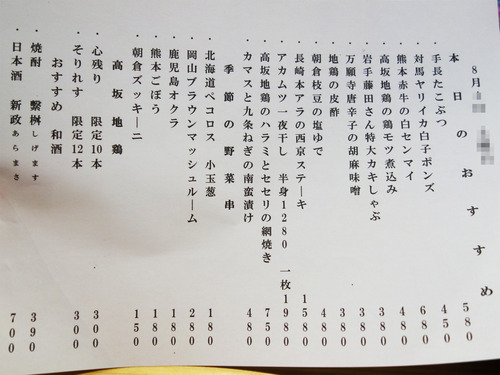 8月
本日のおすすめ
・手長たこぶつ 580
・対馬ヤリイカ白子ポンズ 450
・熊本赤牛の白センマイ 680
・高坂地鶏の鶏モツ煮込み 480
・岩手藤田さん特大カキしゃぶ
・万願寺唐辛子の胡麻味噌 380
・地鶏の皮酢
・朝倉枝豆の塩ゆで 380
・長崎本アラの西京ステーキ 1580
・アカムツ一夜干し 半身1280 一枚1980
・高坂地鶏のハラミとセセリの網焼き 750
・カマスと九条ねぎの南蛮漬け 480
季節の野菜串
・北海道ペコロス 小玉葱 180
・岡山ブラウンマッシュルーム 280
・鹿児島オクラ 180
・熊本ごぼう 180
・朝倉ズッキーニ 150
高坂地鶏
・心残り 限定10本 300
・そりれす 限定12本 300
おすすめ 和酒
・焼酎 繋桝 しげます 390
・日本酒 新政 あらまさ 700